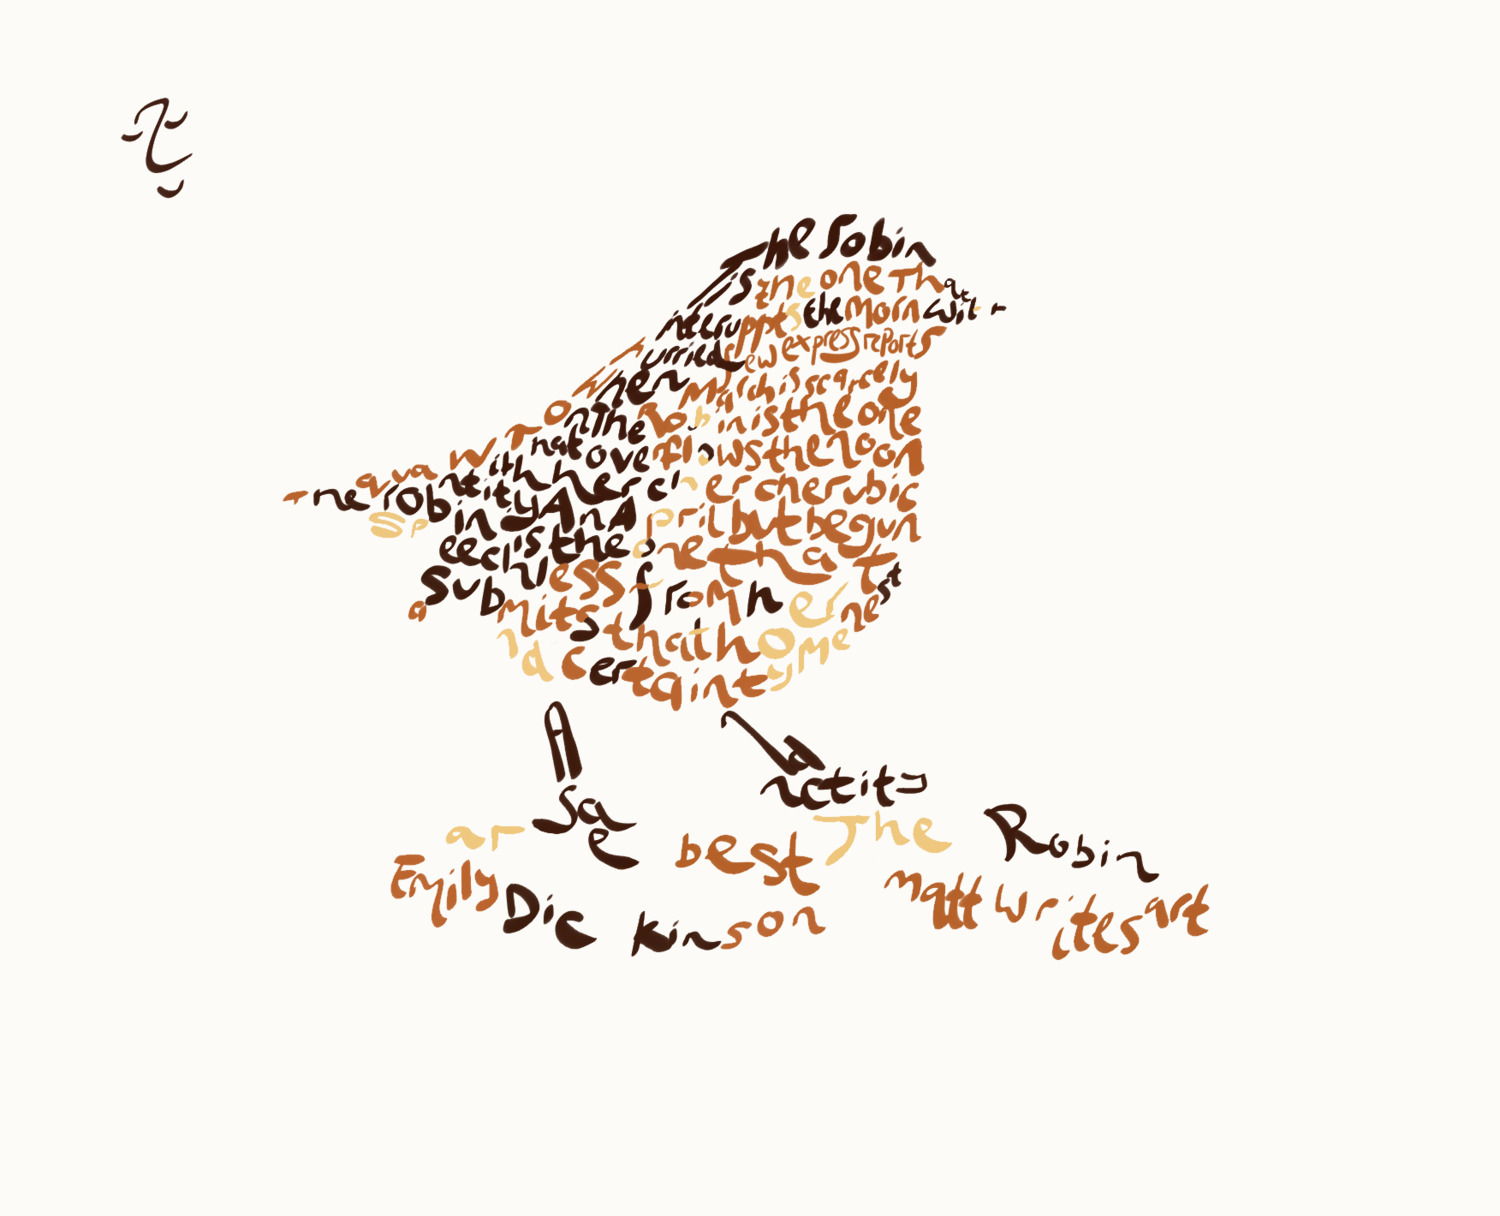 The robin
is the one That
interuppts the Morn
with hurried few express reports
When March is scarcely
on The Robin is the one
That overflows the noon
with her cherubic
quantity And April but begun
The robin is the one that
speechless from her nest
submits that home
and certainty
And sanctity
are best The Robin
Emily Dickinson mattwritesart